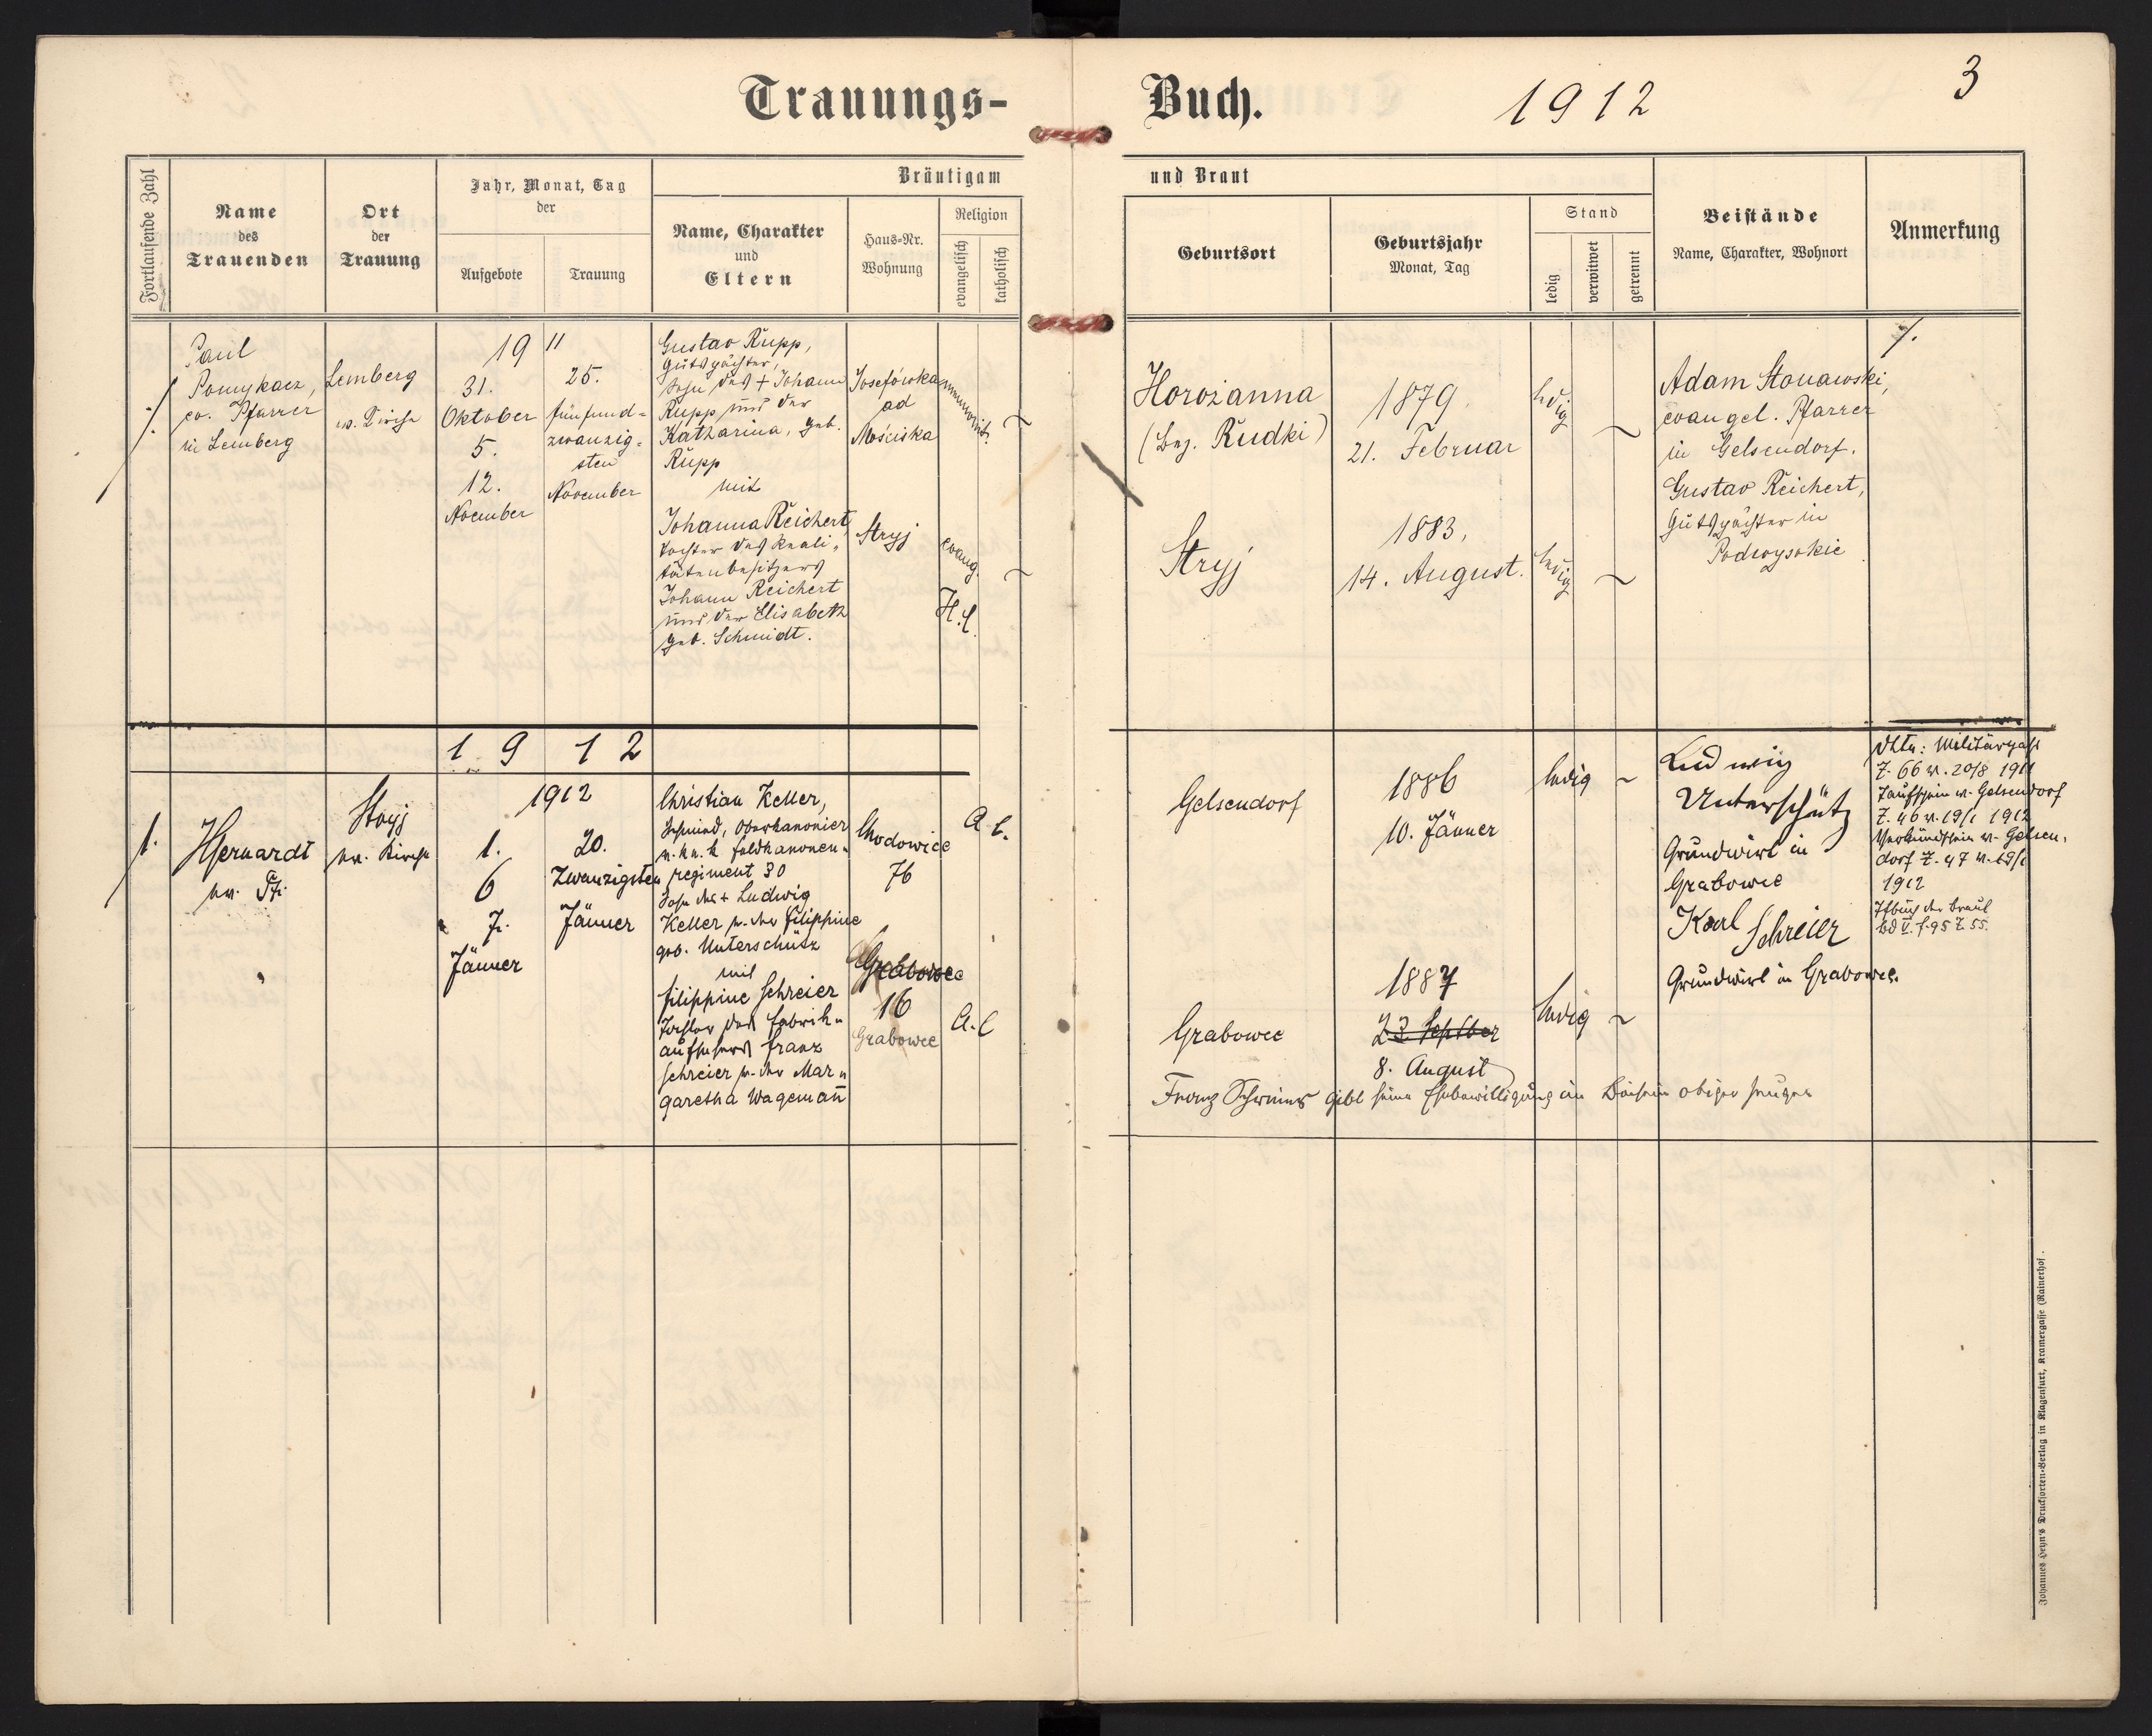 Trauungs-Buch. 1912
3
Fortlaufende Zahl
Name
des
Trauenden
Ort
der
Trauung
Jahr, Monat, Tag
der
Aufgebote
Trauung
Bräutigam und Braut
Name, Charakter
und
Eltern
Haus-Nr.
Wohnung
Religion
evangelisch
katholisch
Geburtsort
Geburtsjahr
Monat, Tag
Stand
ledig
verwitwet
getrennt
Beistände
Name, Charakter, Wohnort
Anmerkung
·/.
Paul
Pomykacz,
ev. Pfarrer
in Lemberg
Lemberg
ev. Kirche
19 11
31.
Oktober
5.
12.
November
25.
fünfund=
zwanzig=
sten
November
Gustav Rupp,
Gutspächter,
Sohn des + Johann
Rupp und der
Katharina, geb.
Rupp
mit
Johanna Reichert,
Tochter des Reali=
tätenbesitzers
Johann Reichert
und der Elisabeth
geb. Schmidt.
Josefówka
ad
Mościska
Stryj
evang.
H. C.
Horożanna
(Bez. Rudki)
Stryj
1879.
21. Februar
1883.
14. August.
ledig
ledig
Adam Stonawski,
evangel. Pfarrer
in Gelsendorf.
Gustav Reichert,
Gutspächter in
Podwysokie
·/.
1 9 1 2
1.
Stryj
ev. Kirche
1912
1.
6
7.
Jänner
20.
Zwanzigsten
Jänner
Christian Keller,
Schmied, Oberkanonier
Feldkanonen=
regiment 30
Sohn des + Ludwig
Keller u. der Filippine
geb. Unterschütz
mit
Filippine Schreier
Tochter des Fabrik=
aufsehers Franz
Schreier u. der Mar=
garetha Wagemann
Chodowice
76
Grabowce
16
Grabowce
A. C.
A. C
Gelsendorf
Grabowce
1886
10. Jänner
1887
23. Septber
8. August
ledig
ledig
Ludwig
Unterschütz
Grundwirt in
Grabowce
Karl Schreier
Grundwirt in Grabowce.
Militärpass
Z. 66 v. 20/8 1911
Taufschein v. Gelsendorf
Z. 46 v. 19/1 1912
Verkündschein v. Gelsen=
dorf Z. 47 v. 19/1
1912
der Braut
Bd V. f. 95 Z. 55.
Franz Schreier gibt seine Ehebewilligung im Beisein obiger Zeugen
Johannes Heyn's Drucksorten-Verlag in Klagenfurt, Kramergasse (Rainerhof).